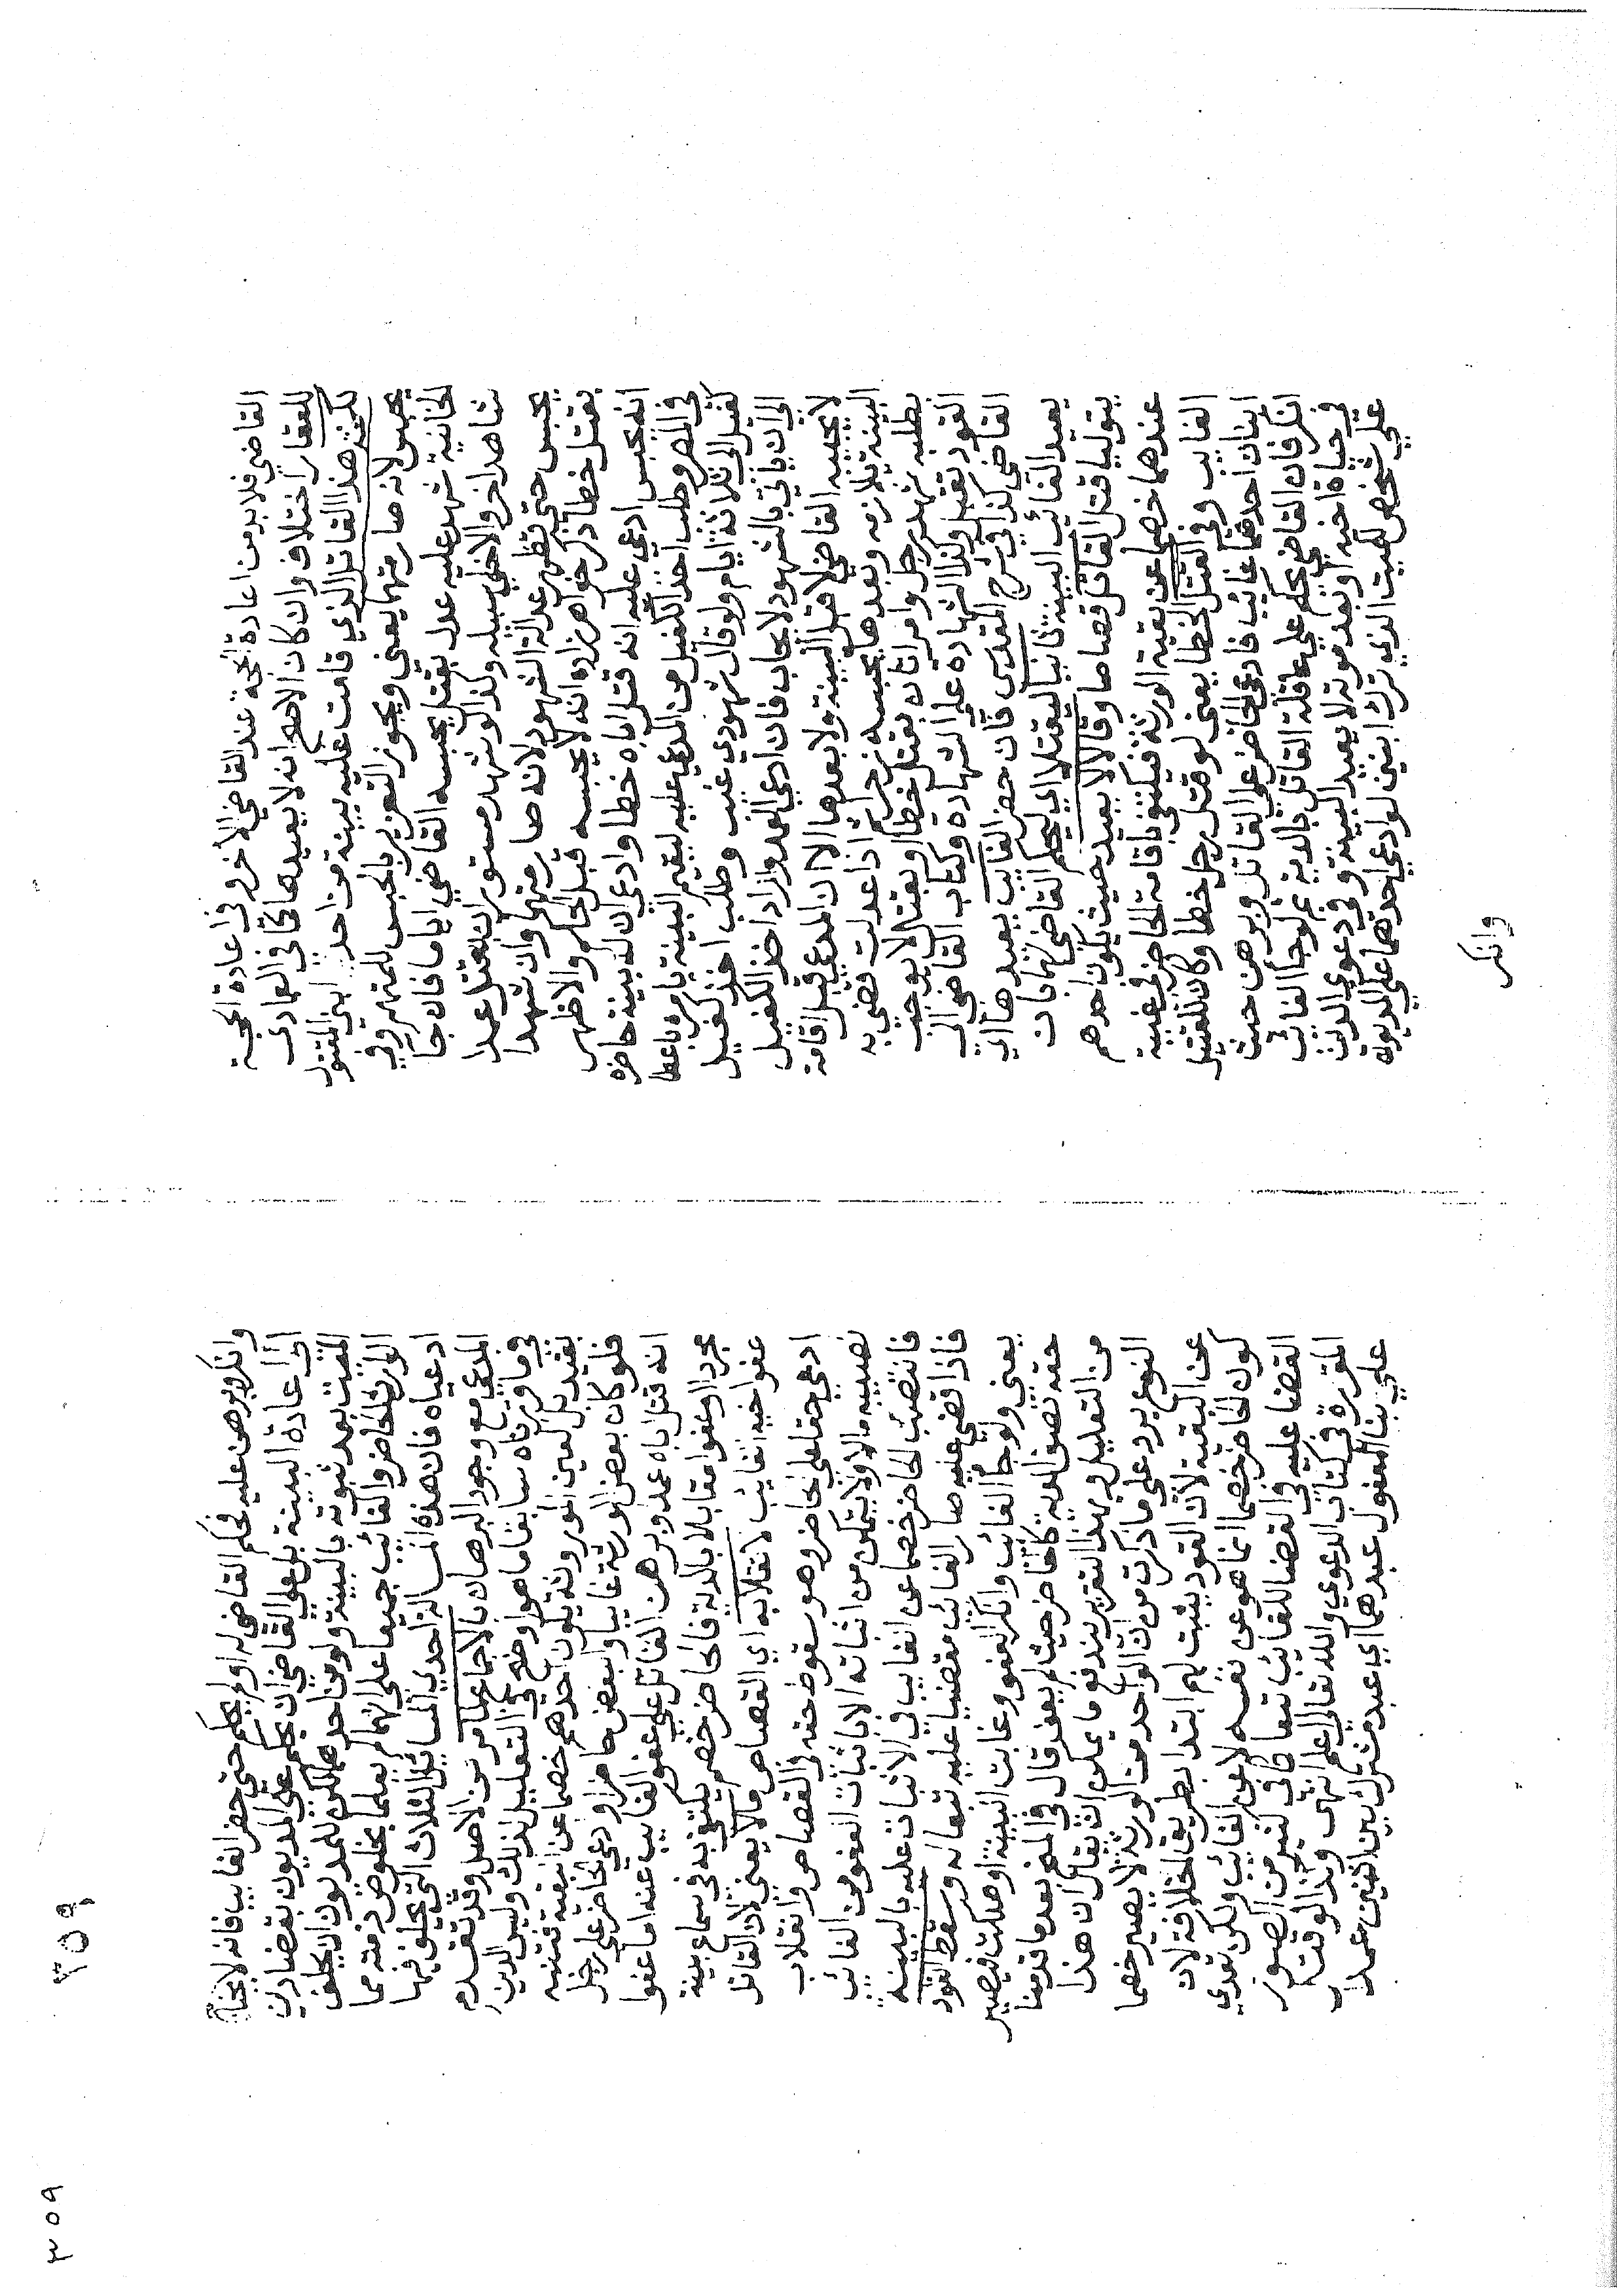 القاضي فلا بد من اعادة الحجة عند القاضي الاخر وفي اعادة الحجة
للعقار اختلاف وان كان الاصح انه لا يعيدها كما في العمادي
لكن هذا القاتل الذي قامت عليه بينة من احد ابني المقتول
يحبس لانه صار متهما يعني ويجوز التعزير بالحبس للمتهم وفي
الخانية شهد عليه عدل بقتل يحبسه القاضي اياما فان جا
شاهد اخر والا خلي سبيله وكذا لو شهد مستوران بقتل عمدا
يحبس حتي تظهر عدالة الشهود لانه صار متهما وان شهدا
بقتل خطا ذكر خواهر زاده انه لا يحبسه قبل الحكم والاظهر
انه يحبس ادعي عليه انه قتل اباه خطا وادعي ان له بينة حاضره
في المصر وطلب اخذ الكفيل من المدعي عليه ليقيم البينة يامره باعطا
كفيل الي ثلاثة ايام ولو قال شهودي غيب وطلب اخذ كفيل
الي ان ياتي بالشهود لا يجاب فان ادعي العمد واراد اخذ الكفيل
لا يجيبه القاضي لا قبل البينة ولا بعدها الا ان المدعي قبل اقامة
البينة يلازمه وبعدها يحبسه زجرا ثم اذا عدلت قضي به
بطلبه شهد رجل وامراتان بقتل خطا او بقتل لا يوجب
القود تقبل وكذا الشهادة علي الشهادة وكتاب القاضي الي
القاضي كذا في شرح المقدسي فان حضر الغايب يعيدها اي
يعيد الغائب البينة ثانيا ليقتلا اي ليحكم القاضي لهما بان
يتوليا قتل القاتل قصاصا وقالا لا يعيد حيث يكون احدهم
عندهما خصما عن بقية الورثة فيكتفي باقامة الحاضر في غيبة
الغايب وفي القتل الخطا يعني لو قتل رجل خطا وكان للقتيل
ابنان احدهما غائب فادعي الحاضر علي القاتل وبرهن حيث
انكر فان القاضي يحكم علي عاقلة القاتل بالدية ثم لو جا الغائب
في حياة اخيه او بعد موته لا يعيد البينة وفي دعوي الدين
علي شخص لميت الذي ترك ابنين لو ادعي احدهما علي المديون
وانكر
٣٥٩
٣٥٩
وانكر وبرهن عليه فحكم القاضي له او لم يحكم حتي حضر الغايب فانه لا يحتاج
الي اعادة البينة بل علي القاضي ان يحكم علي المديون بقضا دين
الميت بعد ثبوته بالبينة ولو من احدهما لكن للمديون ان يحلف
الوارث الحاضر والغائب جميعا علي انهما لم يعلما بخلوص ذمته مما
ادعياه فان هذه المسالة احدي المسائل الثلاث التي يحلف فيها
المدعي مع وجود البرهان بالاجماع مر من الاصل وقد تقدم
في ما قررناه سابقا ما هو اوضح في التعليل لذلك وليس الدين
بقيد بل العين الموروثة يكون احدهم خصما عن البقية فتنبه
فلو كان بعض الورثة غايبا والبعض حاضرا وادعي الحاضر علي رجل
انه قتل اباه عمدا وبرهن القاتل علي عفو الغايب عنه اما عفوا
مجردا او عفوا مقابلا بالدية فالحاضر خصم يكتفي به في سماع بينة
عفو اخيه الغايب لانقلابه اي القصاص مالا يعني لان القاتل
ادعي حقا علي الحاضر وهو سقوط حقه في القصاص وانقلاب
نصيبه مالا ولا يتمكن من اثباته الا باثبات العفو من الغائب
فانتصب الحاضر خصما عن الغايب في الاثبات عليه بالبينة
فاذا قضي عليه صار الغائب مقضيا عليه تبعا له وسقط القود
يعني ولو جا الغائب وانكر العفو وغابت البينة او هلكت فيصير
حقه نصف الدية كالحاضر حيث لم يعف قال في المنح بعد ما قدمنا
من التعليل وبهذا التقرير يندفع ما يمكن ان يقال ان هذا
النوع يرد علي ما ذكرت من ان الواحد من الورثة لا يصير خصما
عن البقية لان القود يثبت لهم ابتدا بطريق الخلافة لان
كون الحاضر خصما انما هو عن نفسه لا عن الغائب ولكن تعدي
القضا عليه في القضا للغائب تبعا كما في كثير من الصور
المقررة في كتاب الدعوي والله تعالي اعلم انتهي وكذا لو قتل
علي بنا المفعول عبدهما اي عبد مشترك بين اثنين عمدا